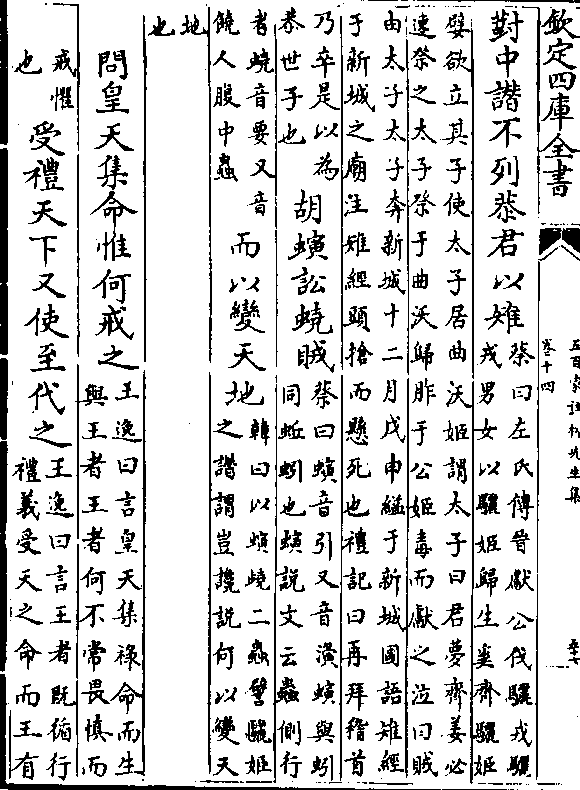 欽定四庫全書
五百家注柳先生集
卷十四
對中譖不列恭君以雉
蔡曰左氏傳晉獻公伐驪戎驪
戎男女以驪姬歸生奚齊驪姬
嬖欲立其子使太子居曲沃姬謂太子曰君夢齊姜必
速祭之太子祭于曲沃歸胙于公姬毒而獻之泣曰賊
由太子太子奔新城十二月戊申縊于新城國語雉經
于新城之廟注雉經頭搶而懸死也禮記曰再拜稽首
乃卒是以為
恭世子也
胡螾訟蟯賊
蔡曰螾音引又音演螾與蚓
同蚯蚓也螾說文云蟲側行
者蟯音要又音
饒人腹中蟲
而以變天地
韓曰以螾蟯二蟲譬驪姬
之譖謂豈讒說何以變天
地
也
問皇天集命惟何戒之
王逸曰言皇天集祿命而生
與王者王者何不常畏慎而
戒懼
也
受禮天下又使至代之
王逸曰言王者既循行
禮義受天之命而王有